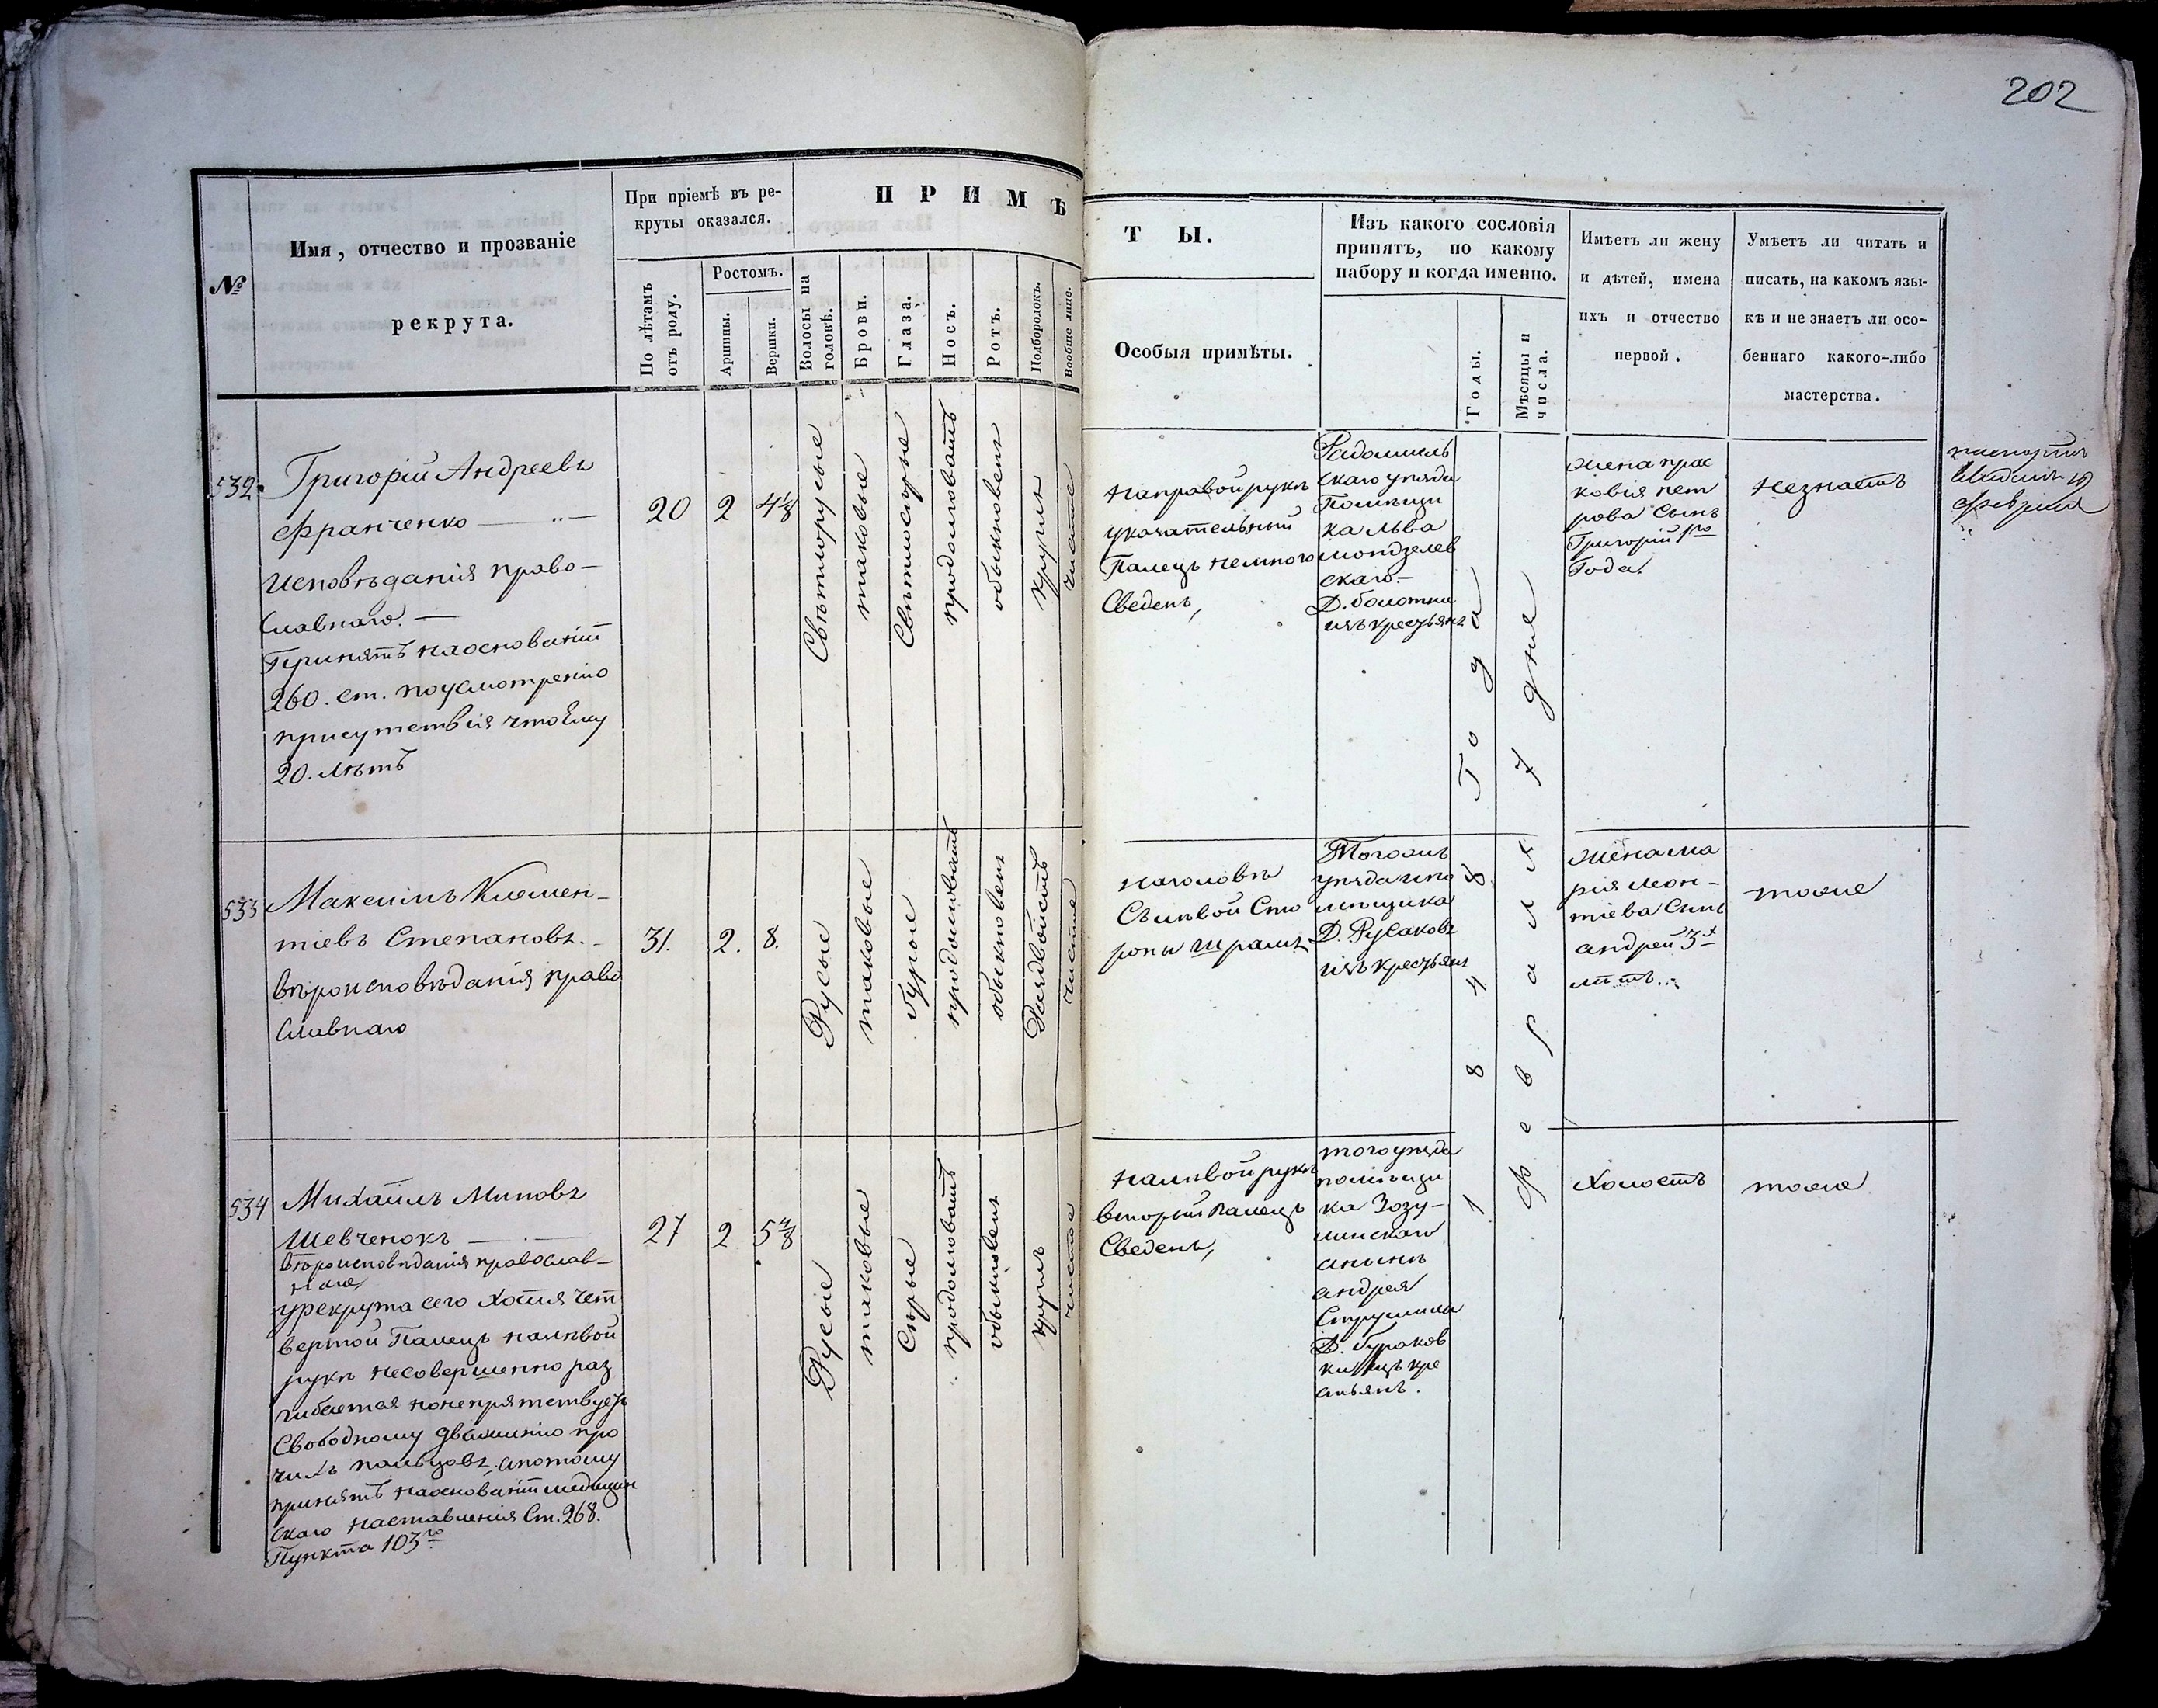 202
№
Имя, отчество и прозваніе
рекрута.
При пріемѣ въ ре-
круты оказался.
По лѣтамъ
отъ роду.
Ростомъ.
Аршины.
Вершки.
ПРИМѢ
Волосы на
головѣ.
Брови.
Глаза.
Носъ.
Ротъ.
Подбородокъ.
Вообще лице.
ТЫ.
Особыя примѣты.
Изъ какого сословія
принятъ, по какому
набору и когда именно.
Годы.
Мѣсяцы и
числа.
Имѣетъ ли жену
и дѣтей, имена
ихъ и отчество
первой.
Умѣетъ ли читать и
писать, на какомъ язы-
кѣ и не знаетъ ли осо-
беннаго какого-либо
мастерства.
532
Григорій Андреевъ
Франченко
Исповѣданія право-
славнаго. —
Принятъ наоснованіи
260. ст. поусмотренію
присутствія что ему
20. лѣтъ
20
2
4 1/8
Свѣтлорусые
таковые
Свѣтлосѣрые
продолговатъ
обыкновенъ
круглъ
чистое
Направой рукѣ
указательный
Палецъ немного
Сведенъ,
Радомысль
скаго уѣзда
Помѣщи
ка Льва
Мондзелев
скаго —
Д. болотни
изъ крестьянъ
жена прас
ковія пет
рова Сынъ
Григорій 1го
Года.
Незнаетъ
февраля
533
Максимъ Климен-
тіевъ Степановъ. -
вѣроисповѣданія право
славнаго
31.
2.
8.
Русые
таковые
бурые
продолговатъ
обыкновенъ
Раздвоистъ
чистое
Наголовѣ
Съ лѣвой Сто
роны шрамъ
Тогожъ
уѣзда ипо
мѣщика
Д. Русаковъ
изъ крестьянъ
жена Ма
рія Леон-
тіева Сынъ
андрей 3х
лѣтъ.
тоже
1848 Года
Февраля 7 дня
534
Михайлъ Миновъ
Шевченокъ
Вѣроисповѣданія православ-
наго,
урекрута сего хотя чет
вертой Палецъ налѣвой
рукѣ несовершенно раз
гибается нонепрятствуетъ
Свободному движенію про
чихъ пальцовъ, апотому
принятъ наоснованіи медицин
скаго наставленія Ст. 268.
Пункта 103го
27
2
5 7/8
Русые
таковые
Сѣрые
продолговатъ
обыкновенъ
круглъ
чистое
Налѣвой рукѣ
вторый палецъ
Сведенъ,
того уѣзда
помѣщи
ка Зозу-
линскаго
андрея
Д. бураков
ки изъ кре
стьянъ.
Холостъ
тоже